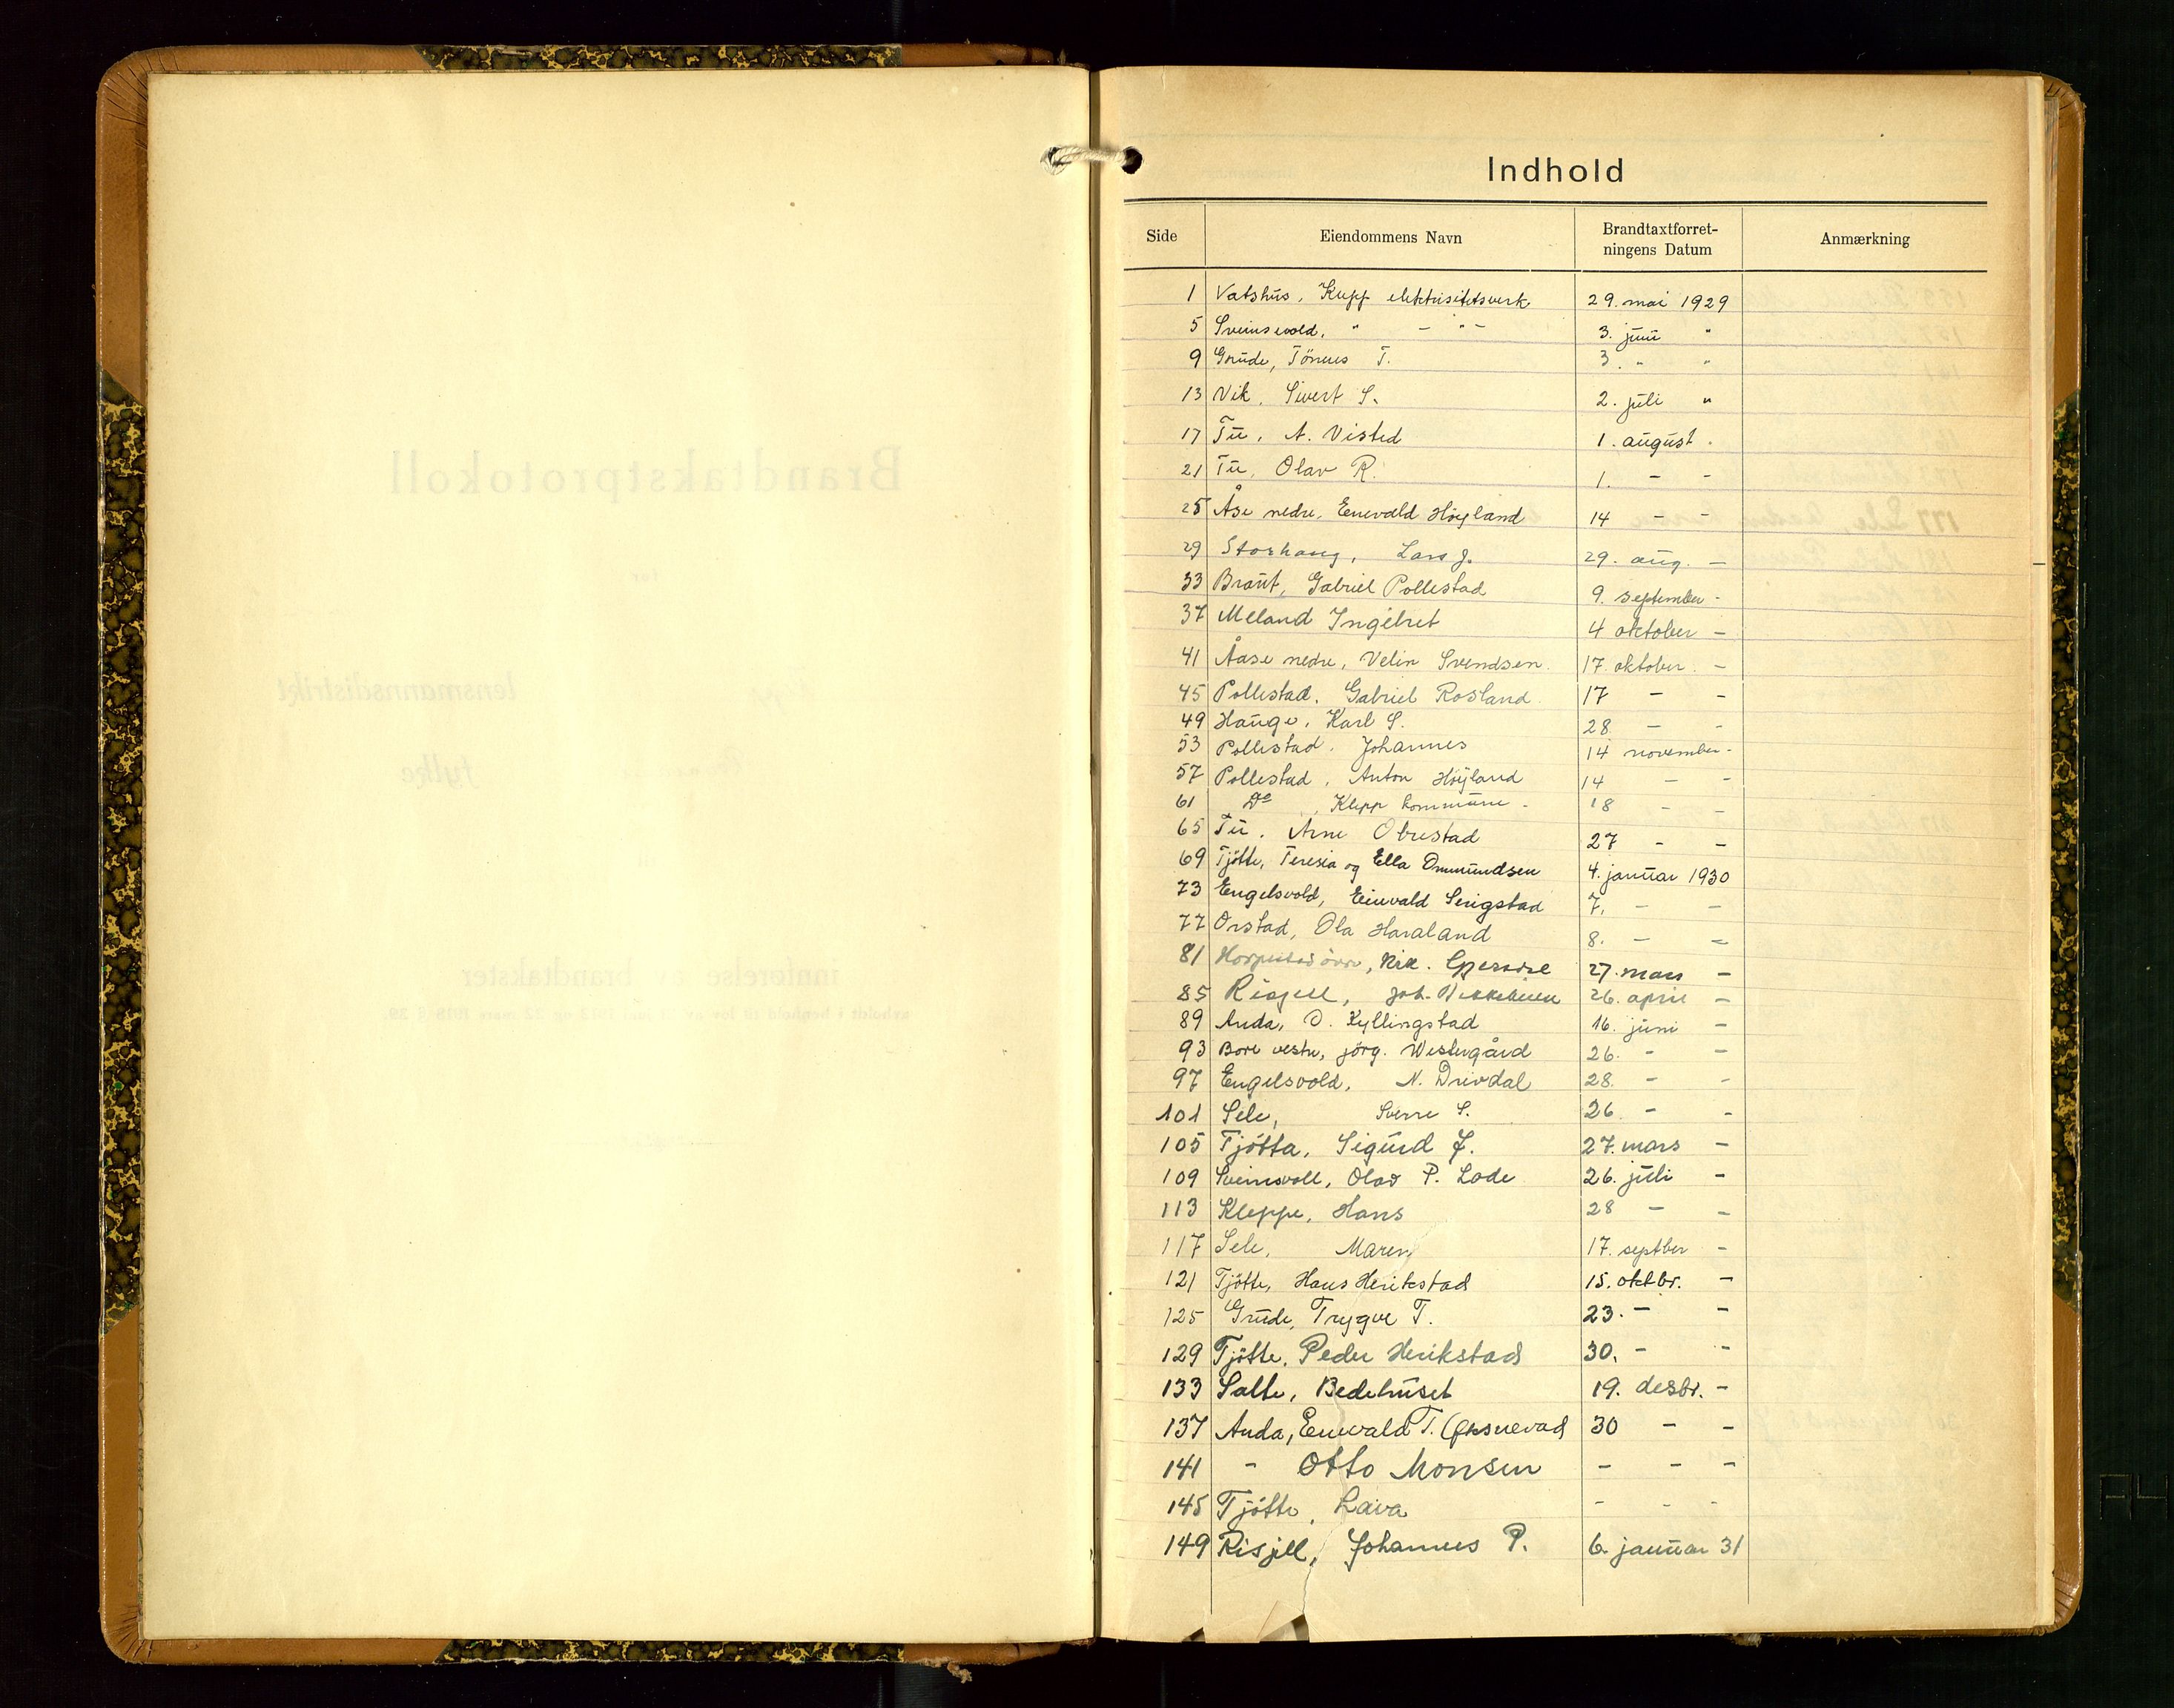 Indhold
Side Eiendommens Navn Brandtaxtforret-
ningens Datum Anmærkning
1 Vatshus, Klepp elektrisitetsverk 29. mai 1929
5 Sveinsvold, " - " - 3. juni "
9 Grude, Tönnes T. 3. " "
13 Vik, Sivert S. 2. juli "
17 Tu, A. Visted 1. august.
21 Tu, Olav R. 1. - -
25 Åse nedre, Enevald Höyland 14 - -
29 Storhaug, Lars J. 29. aug. -
33 Braut, Gabriel Pollestad 9. september -
37 Meland Ingebret 4 oktober -
41 Åase nedre, Velin Svendsen. 17. oktober. -
45 Pollestad, Gabriel Rosland 17 - -
49 Hauge, Karl S. 28 - -
53 Pollestad, Johannes 14 november -
57 Pollestad, Anton Höyland 14 - -
61 Do, Klepp kommune - 18 - -
65 Tu, Arne Obrestad 27 - -
69 Tjötte, Teresia og Ella Ommundsen 4. januar 1930
73 Engelsvold, Einvald Serigstad 7. - -
77 Orstad, Ola Haraland 8. - -
81 övre, Nik. 27. mars -
85 Risjell, Joh. 26. april -
89 Anda, O. Kyllingstad 16. juni -
93 Bore vestre, jörg. Westergård 26. - -
97 Engelsvold, N. Drivdal 28. - -
101 Sele, Sverre S. 26. - -
105 Tjötta, Sigurd J. 27. mars -
109 Sveinsvoll, Olav P. Lode 26. juli -
113 Kleppe, Hans 28 - -
117 Sele, Maren 17. septber -
121 Tjötte, Hans Herikstad 15. oktbr. -
125 Grude, Trygve T. 23. - -
129 Tjötte, Peder Herikstad 30. - -
133 Salte, Bedehuset 19. desbr. -
137 Anda, Enevald T. Øksnevad 30 - -
141 - Otto Monsen - - -
145 Tjötte, Lava - - -
149 Risjell, Johannes P. 6. januar 31